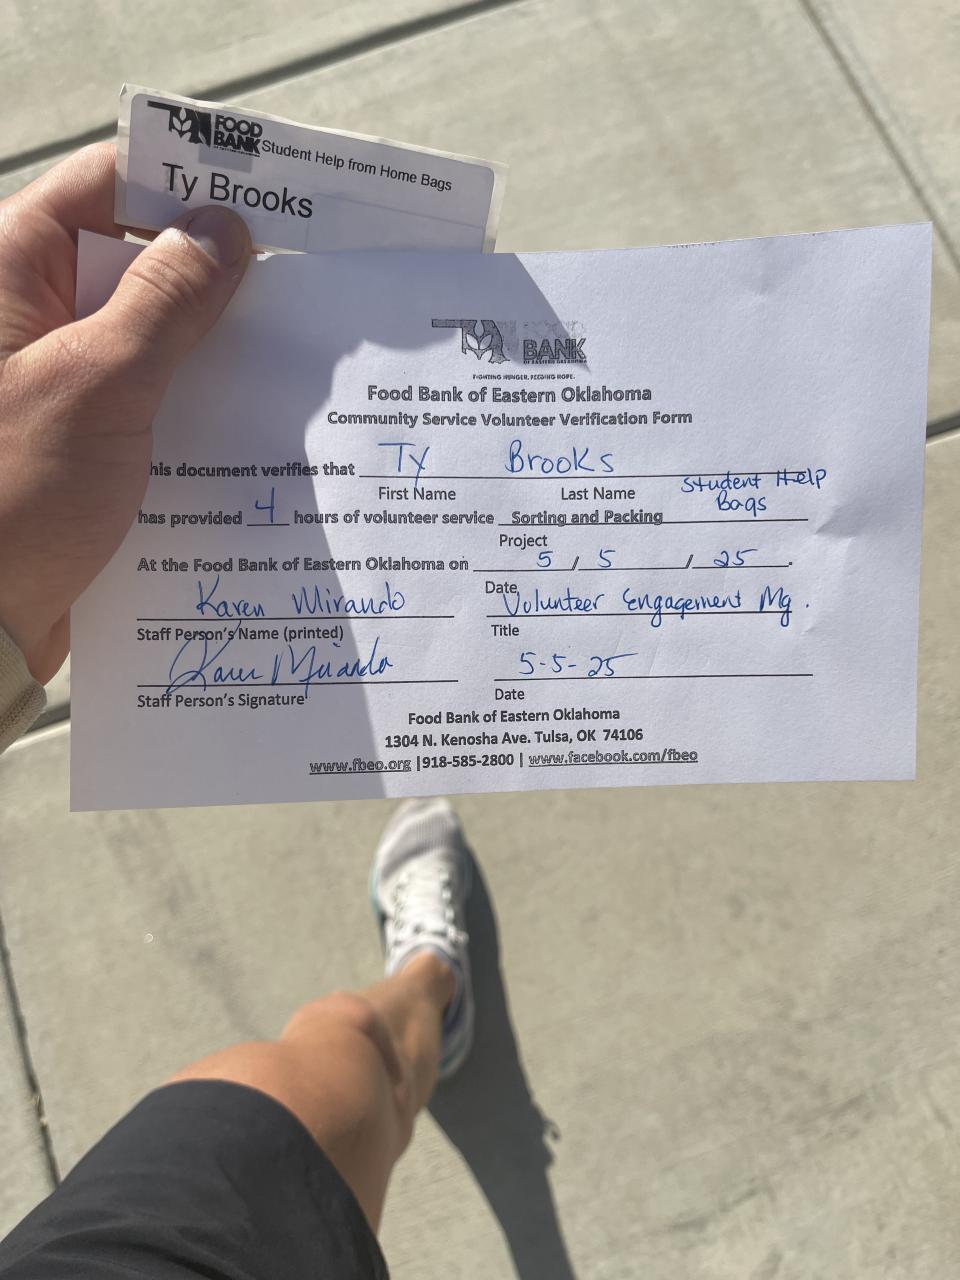 FOOD
BANK Student Help from Home Bags
OF EASTERN OKLAHOMA
Ty Brooks
FOOD
BANK
OF EASTERN OKLAHOMA
FIGHTING HUNGER. FEEDING HOPE.
Food Bank of Eastern Oklahoma
Community Service Volunteer Verification Form
his document verifies that Ty Brooks
First Name Last Name
Student Help
Bags
has provided 4 hours of volunteer service Sorting and Packing
Project
At the Food Bank of Eastern Oklahoma on 5 / 5 / 25.
Date
Karen Mirando Volunteer Engagement Mg.
Staff Person's Name (printed) Title
Karen Miranda 5-5-25
Staff Person's Signature Date
Food Bank of Eastern Oklahoma
1304 N. Kenosha Ave. Tulsa, OK 74106
www.fbeo.org |918-585-2800 | www.facebook.com/fbeo